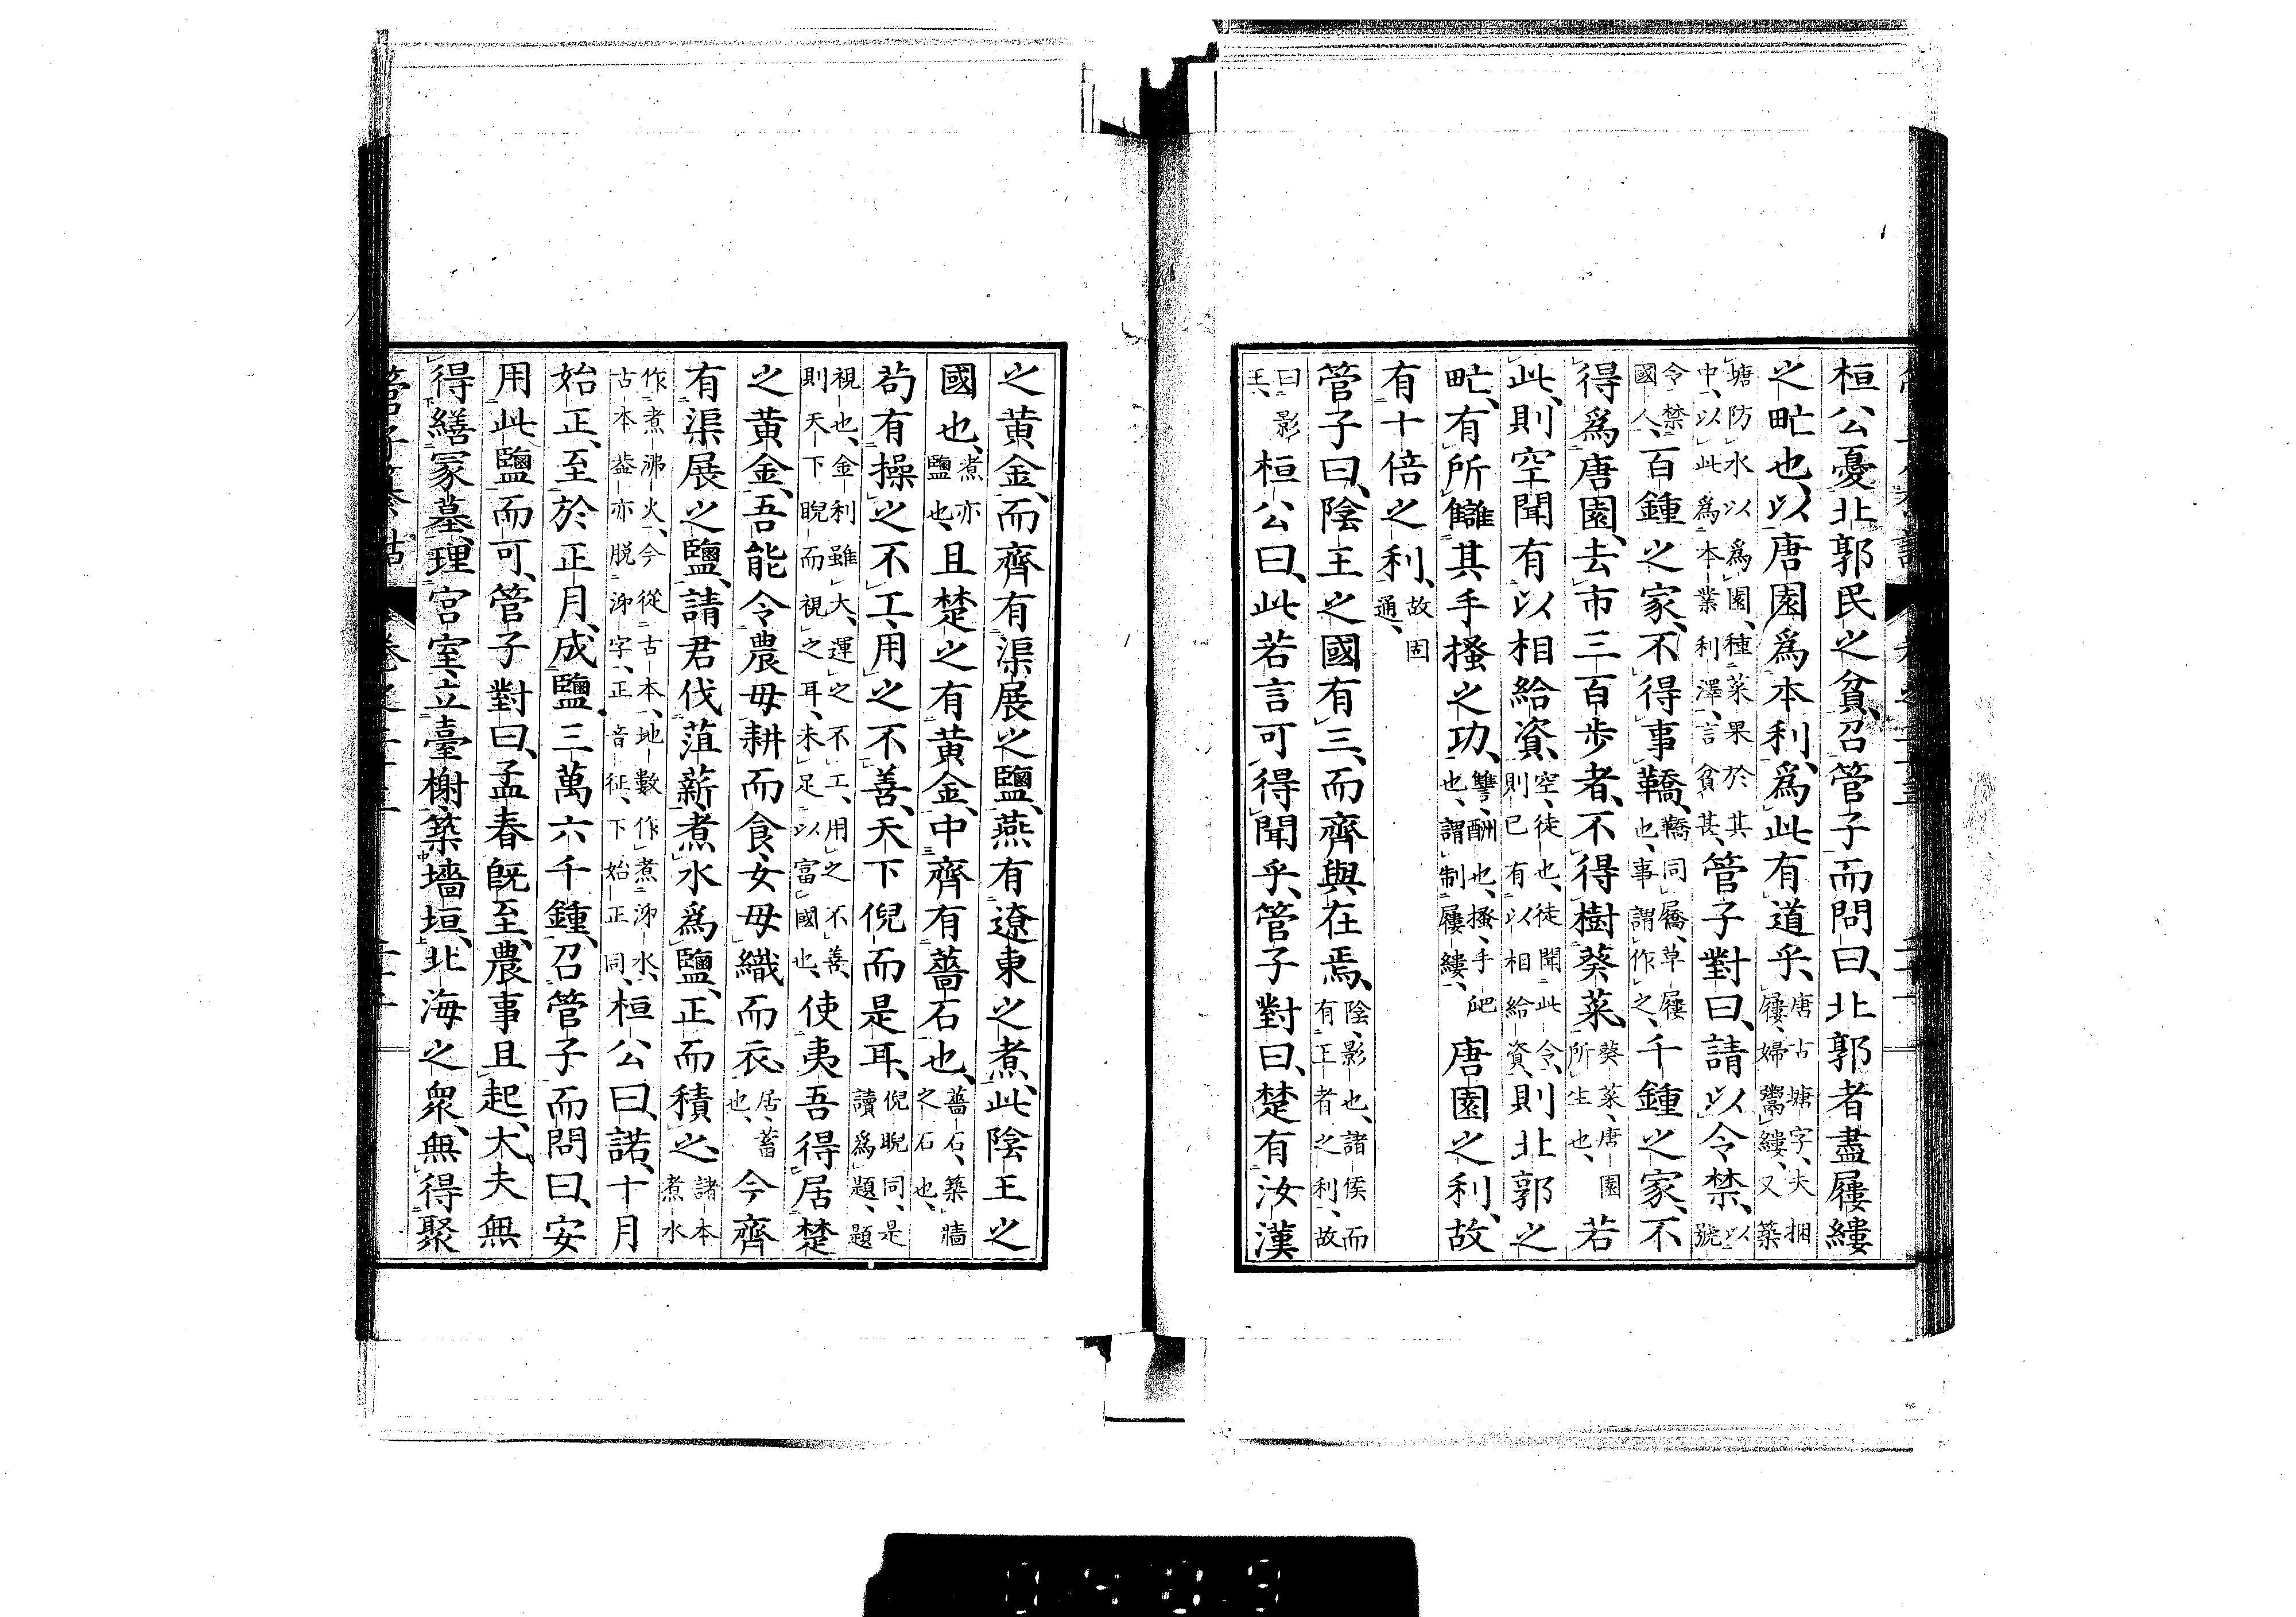 桓公憂北郭民之貧、召管子而問曰、北郭者盡屨縷
之甿也、以唐園爲本利、爲此有道乎、唐古塘字、夫捆屨、婦鬻縷、又築
塘防水以爲園、種菜果於其中、以此爲本業利澤、言貧甚、管子對曰、請以令禁、以號
令禁國人、百鍾之家、不得事鞽、鞽同屩、草屨也、事謂作之、千鍾之家、不
得爲唐園、去市三百步者、不得樹葵菜、葵菜、唐園所生也、若
此、則空聞有以相給資、空、徒也、徒聞此令、則已有以相給資、則北郭之
甿、有所讎其手搔之功、讐、酬也、搔、手爬也、謂制屨縷、唐園之利、故
有十倍之利、故固通、
管子曰、陰王之國有三、而齊與在焉、陰、影也、諸侯而有王者之利、故
曰影王、桓公曰、此若言可得聞乎、管子對曰、楚有汝漢
之黃金、而齊有渠展之鹽、燕有遼東之煮、此陰王之
國也、煮亦鹽也、且楚之有黃金、中齊有薔石也、薔石、築牆之石也、
苟有操之不工、用之不善、天下倪而是耳、倪睨同、是讀爲題、題
視也、金利雖大、運之不工、用之不善、則天下睨而視之耳、未足以富國也、使夷吾得居楚
之黃金、吾能令農毋耕而食、女毋織而衣、居、蓄也、今齊
有渠展之鹽、請君伐菹薪、煮水爲鹽、正而積之、諸本煮水
作煮沸火、今從古本、地數作煮沸水、古本葢亦脱沸字、正音征、下始正同、桓公曰、諾、十月
始正、至於正月、成鹽三萬六千鍾、召管子而問曰、安
用此鹽而可、管子對曰、孟春既至、農事且起、大夫無
得繕冢墓、理宮室、立臺榭、築墻垣、北海之眾、無得聚
管子纂詁 卷之二十三